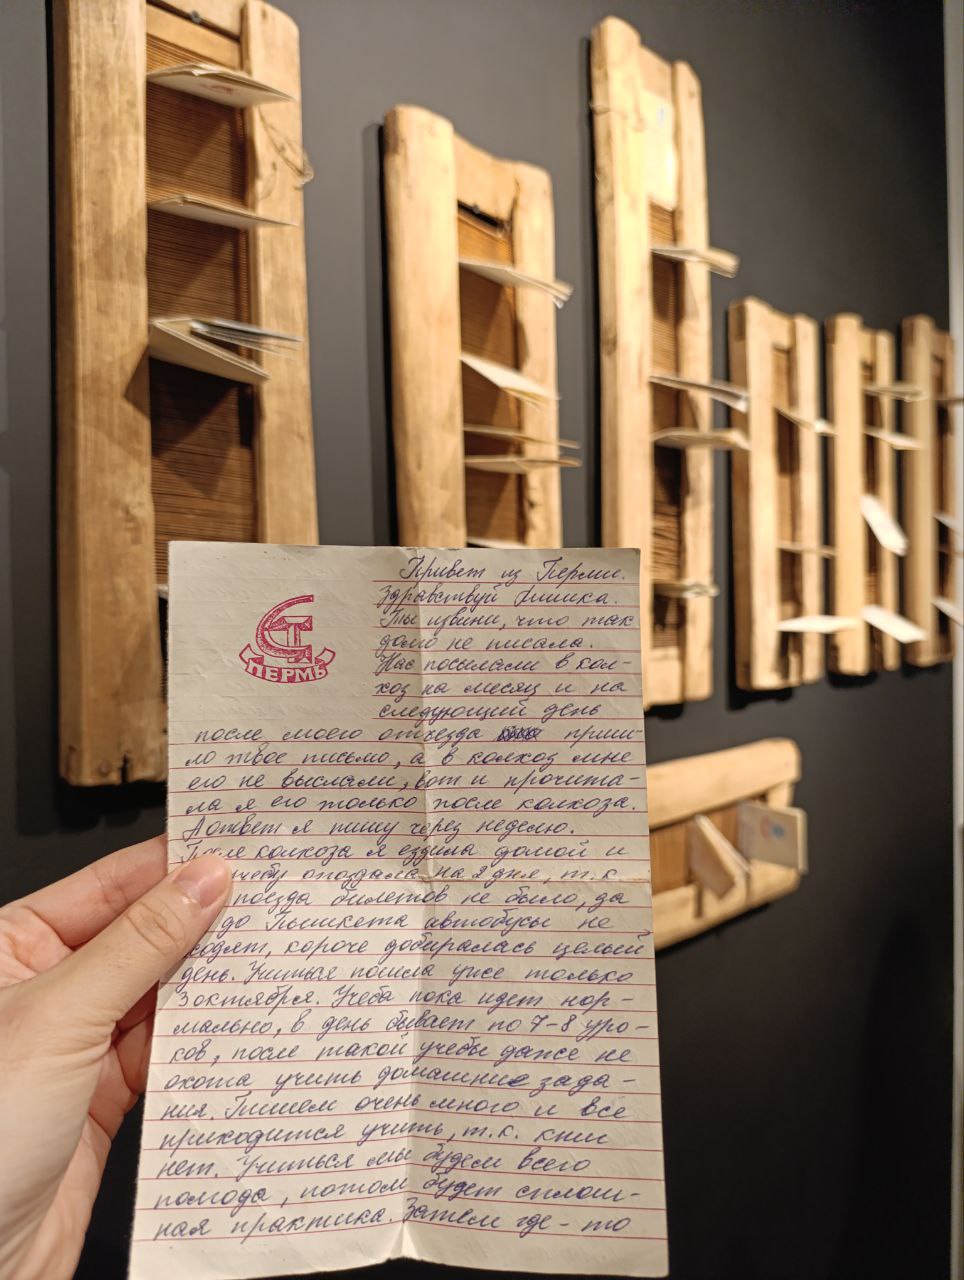 ПЕРМЬ
Привет из Перми.
Здравствуй
Ты извини, что так
долго не писала.
Нас посылали в кол-
хоз на месяц и на
следующий день
после моего отъезда приш-
ло твоё письмо, а в колхоз мне
его не выслали, вот и прочита-
ла я его только после колхоза.
А ответ я пишу через неделю.
После колхоза я ездила домой и
учебу опоздала на 2 дня, т.к
поезда билетов не было, да
до Пышкета автобусы не
ходят, короче добиралась целый
день. Учиться пошла уже только
3 октября. Учеба пока идет нор-
мально, в день бывает по 7-8 уро-
ков, после такой учебы даже не
охота учить домашние зада-
ния. Пишем очень много и все
приходится учить, т.к. книг
нет. Учиться мы будем всего
полгода, потом будет сплош-
ная практика. Затем где-то